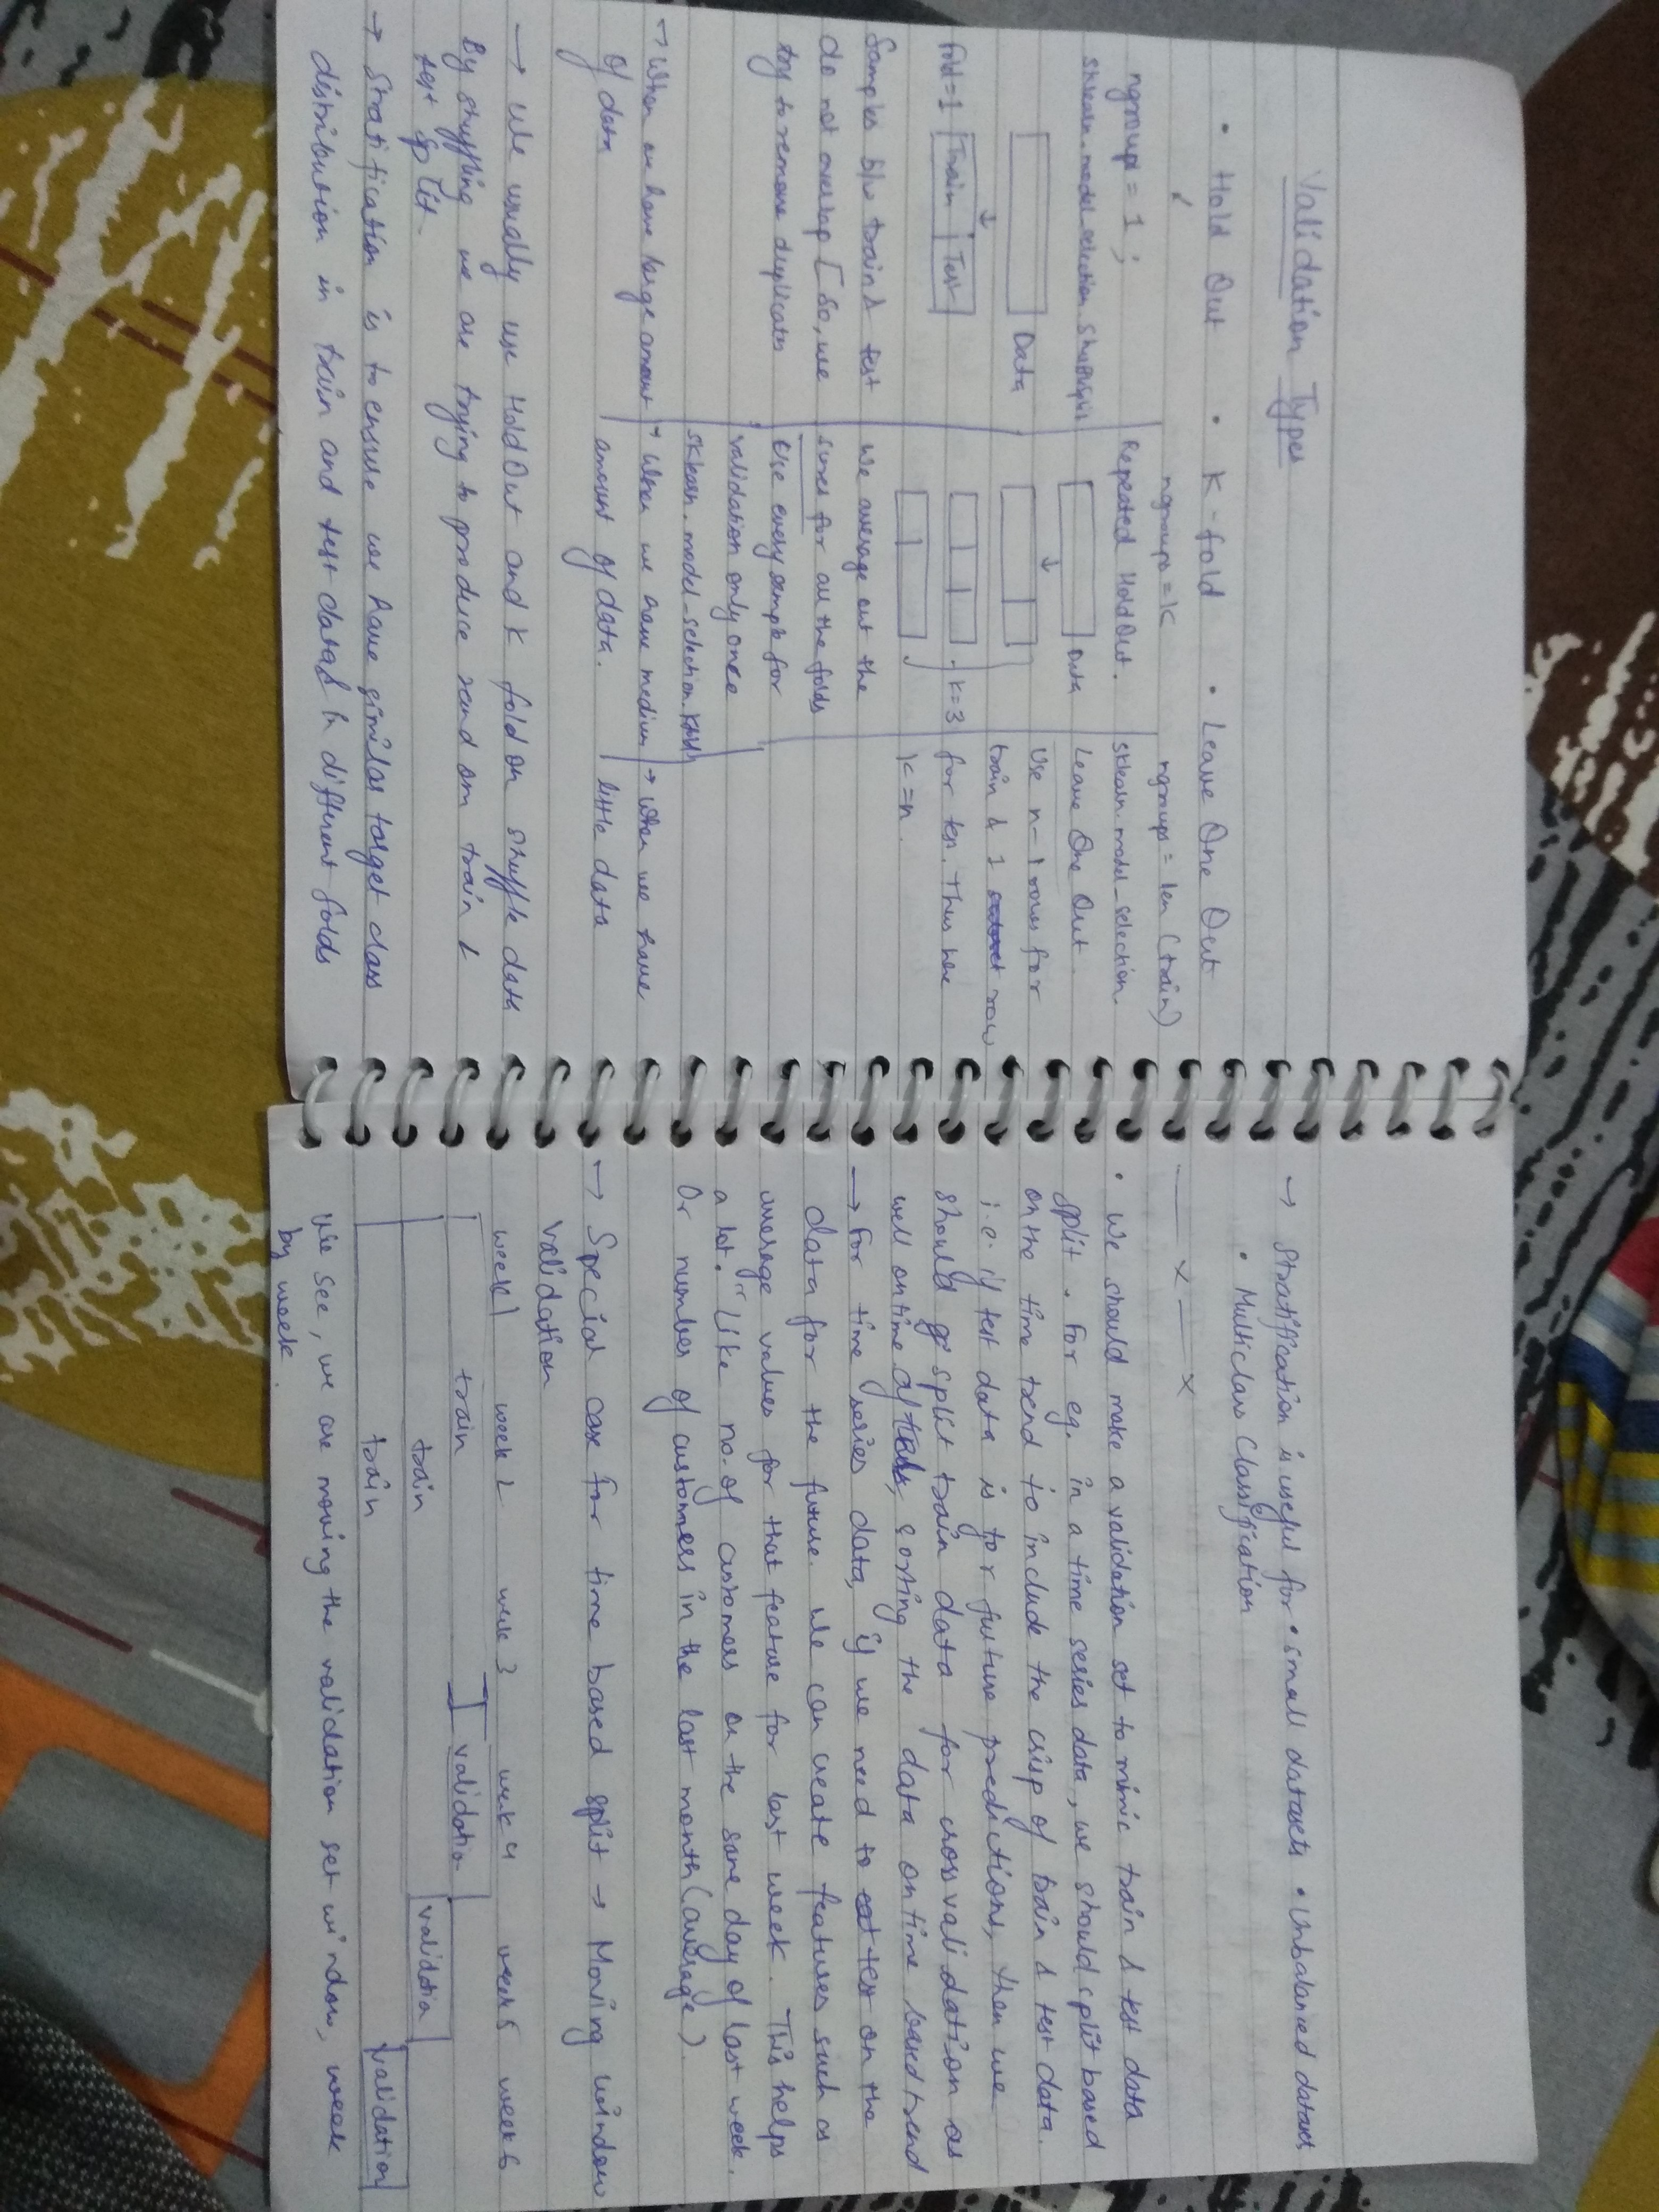 Validation Types
• Hold Out • K-fold • Leave One Out
ngroups = 1 ;
sklearn.model_selection.ShuffleSplit
Data
fold=1 Train Test
Samples b/w train & test
do not overlap [So, we
try to remove duplicates
→ When we have large amount
of data
ngroups = k
Repeated Hold Out.
Data
k=3
We average out the
scores for all the folds
Use every sample for
validation only once
sklearn.model_selection.Kfold
→ When we have medium
amount of data.
ngroups = len(train)
sklearn.model_selection.
Leave One Out.
Use n-1 rows for
train & 1 row
for test. Thus here
k=n.
→ when we have
little data
→ We usually use Hold Out and K fold on shuffle data
By shuffling we are trying to produce random train &
test split.
→ Stratification is to ensure we have similar target class
distribution in train and test data in different folds
→ Stratification is useful for • small datasets • Unbalanced datasets
• Multiclass Classification
— x — x
• We should make a validation set to mimic train & test data
split. For eg. in a time series data, we should split based
on the time trend to include the crisp of train & test data.
i.e. if test data is for future predictions, then we
should split train data for cross validation as
well on time after sorting the data on time based trend
→ For time series data, if we need to test on the
data for the future. We can create features such as
average values for that feature for last week. This helps
a lot. "Like no. of customers on the same day of last week.
Or number of customers in the last month (average).
→ Special case for time based split → Moving window
Validation
week 1 week 2 week 3 week 4 week 5 week 6
train validation
train validation
train validation
We see, we are moving the validation set window, week
by week.